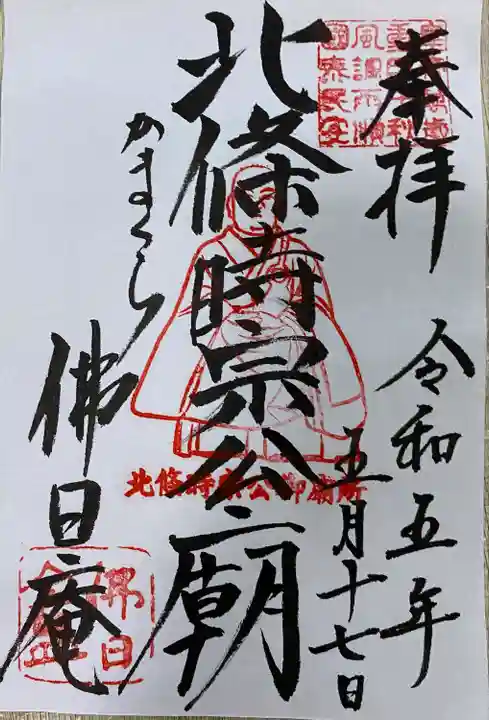 奉拝
令和五年
五月十七日
北條時宗公廟
北條時宗公御廟所
かまくら
佛日庵